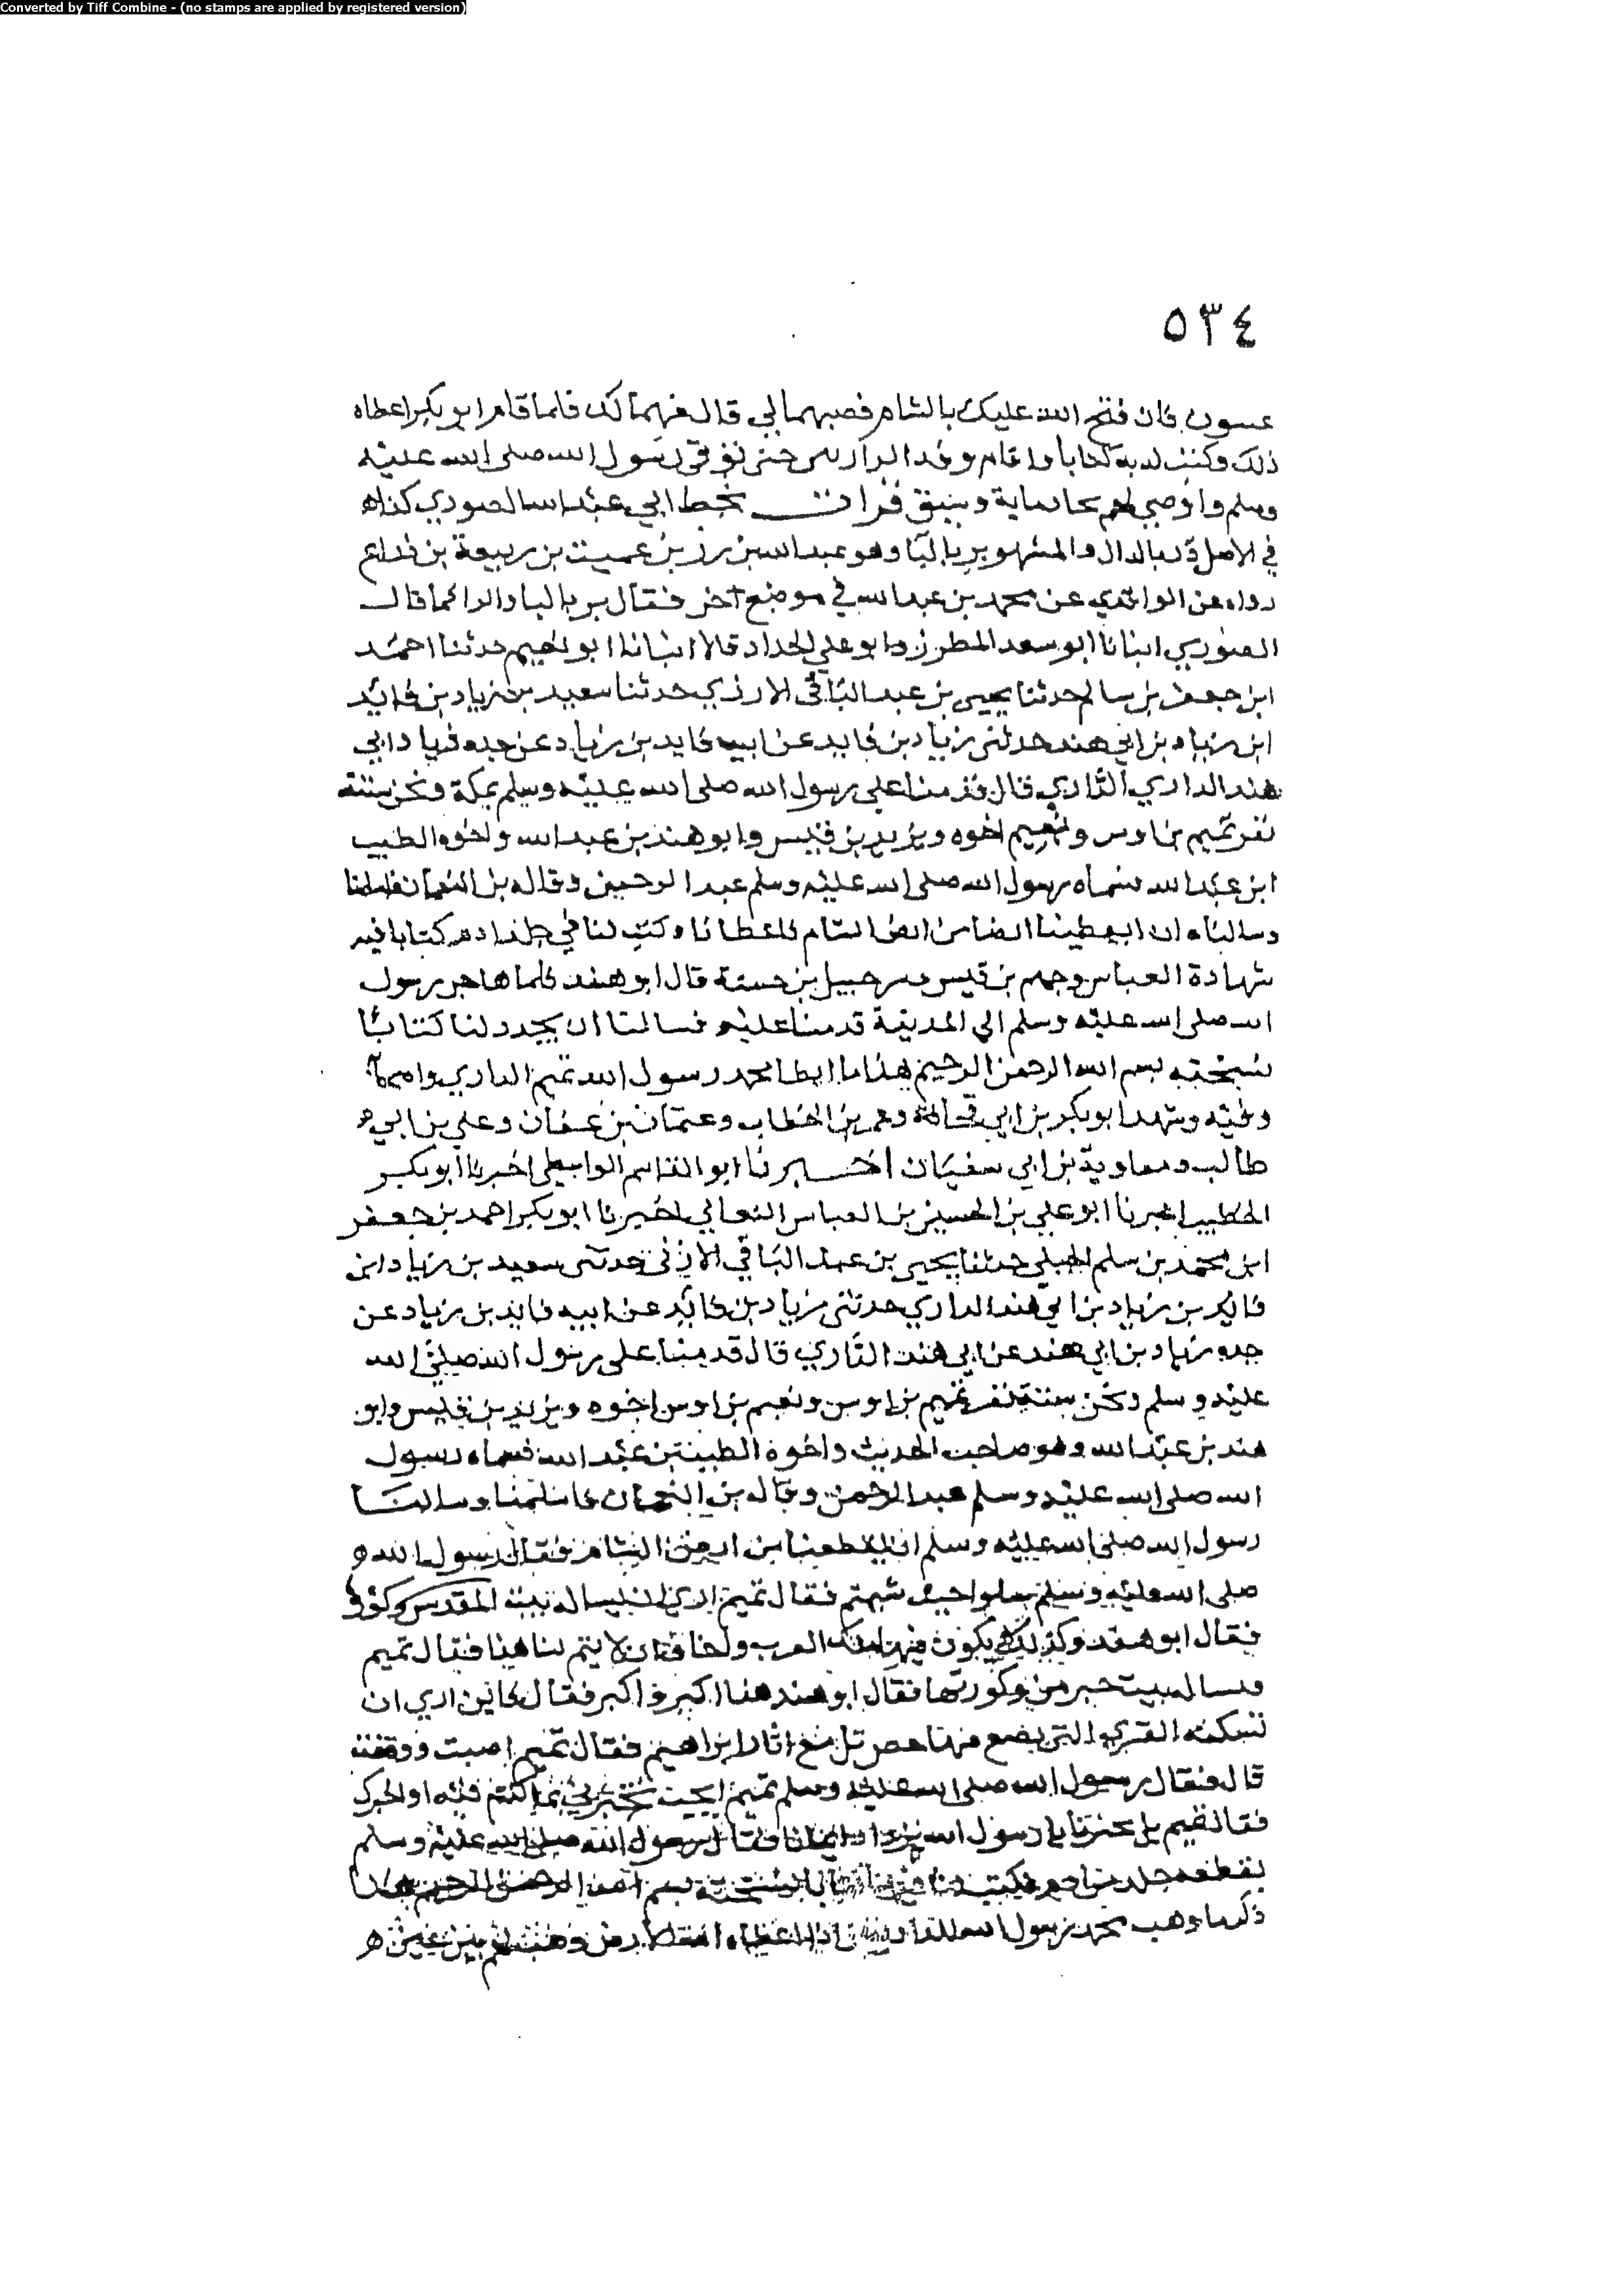 Converted by Tiff Combine - (no stamps are applied by registered version)
٥٣٤
عسون فان فتح الله عليك بالشام فهبهما لي قال فهما لك فلما قام ابو بكر اعطاه
ذلك وكتب له به كتابا واقام وفد الداريين حتى توفي رسول الله صلى الله عليه
وسلم واوصى لهم بحاد ماية وسق قرات بخط ابي عبد الله الصوري كذاه
في الاصل بالدال والمشهور بر بالبا وهو عبد الله بن رزين بن عميت بن ربيعة بن ذراع
رواه عن الواقدي عن محمد بن عبد الله في موضع آخر فقال بر بالبا والرا كما قال
الصوري انبانا ابو سعد المطرز وابو علي الحداد قالا انبانا ابو نعيم حدثنا احمد
ابن جعفر بن سالم حدثنا يحيى بن عبد الباقي الازدي حدثنا سعيد بن زياد بن فائد
ابن زياد بن ابي هند حدثني زياد بن فايد عن ابيه فايد بن زياد عن جده زياد ابي
هند الداري الداري قال قدمنا على رسول الله صلى الله عليه وسلم بمكة ونحن ستة
نفر تميم بن اوس ونعيم اخوه ويزيد بن قيس وابو هند بن عبد الله واخوه الطيب
ابن عبد الله سماه رسول الله صلى الله عليه وسلم عبد الرحمن وفاكه بن النعمان فاسلمنا
وسالناه ان يعطينا ارضا من ارض الشام فاعطانا وكتب لنا في جلد ادم كتابا فيه
شهادة العباس وجهم بن قيس وشرحبيل بن حسنة قال ابو هند فلما هاجر رسول
الله صلى الله عليه وسلم الى المدينة قدمنا عليه فسالنا ان يجدد لنا كتابا
نسخته بسم الله الرحمن الرحيم هذا ما انطا محمد رسول الله تميم الداري واصحابه
وفيه وشهد ابو بكر بن ابي قحافة وعمر بن الخطاب وعثمان بن عفان وعلي بن ابي
طالب ومعاوية بن ابي سفيان اخبرنا ابو القاسم الواسطي اخبرنا ابو بكر
الخطيب اخبرنا ابو علي بن الحسين بن العباس النعالي اخبرنا ابو بكر احمد بن جعفر
ابن محمد بن سلم الجبلي حدثنا يحيى بن عبد الباقي الاذني حدثني سعيد بن زياد ابن
فائد بن زياد بن ابي هند الداري حدثني زياد بن فائد عن ابيه فايد بن زياد عن
جده زياد بن ابي هند عن ابي هند الداري قال قدمنا على رسول الله صلى الله
عليه وسلم ونحن ستة نفر تميم بن اوس ونعيم بن اوس اخوه ويزيد بن قيس وابو
هند بن عبد الله وهو صاحب الحديث واخوه الطيب بن عبد الله فسماه رسول
الله صلى الله عليه وسلم عبد الرحمن وفاكه بن النعمان فاسلمنا وسالنا
رسول الله صلى الله عليه وسلم ان يقطعنا من ارض الشام فقال رسول الله
صلى الله عليه وسلم سلوا حيث شئتم فقال تميم ارى ان نساله بيت المقدس وكورها
فقال ابو هند وكذلك يكون فيها ملك العرب واخاف ان لا يتم لنا هذا فقال تميم
نساله بيت جبرين وكورتها فقال ابو هند هذا اكبر واكبر فقال فاين ارى ان
نسكنه القرى التي يضع فيها حصر تل مع اثار ابراهيم فقال تميم اصبت ووفقت
قال فقال رسول الله صلى الله عليه وسلم تميم احب تخبرني بما كنتم فيه او اخبرك
فقال تميم بل تخبرنا يا رسول الله نزداد ايمانا فقال رسول الله صلى الله عليه وسلم
بقطعه جلد من ادم فكتب لنا فيها كتابا نسخته بسم الله الرحمن الرحيم هذا
ذكر ما وهب محمد رسول الله للداريين اذا اعطاه الله الارض وهبت لهم بيت عين